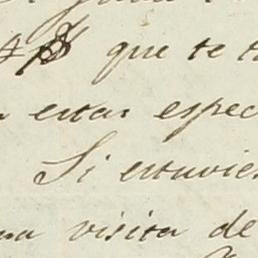 que te
estas espec
Si estuvie
visita de